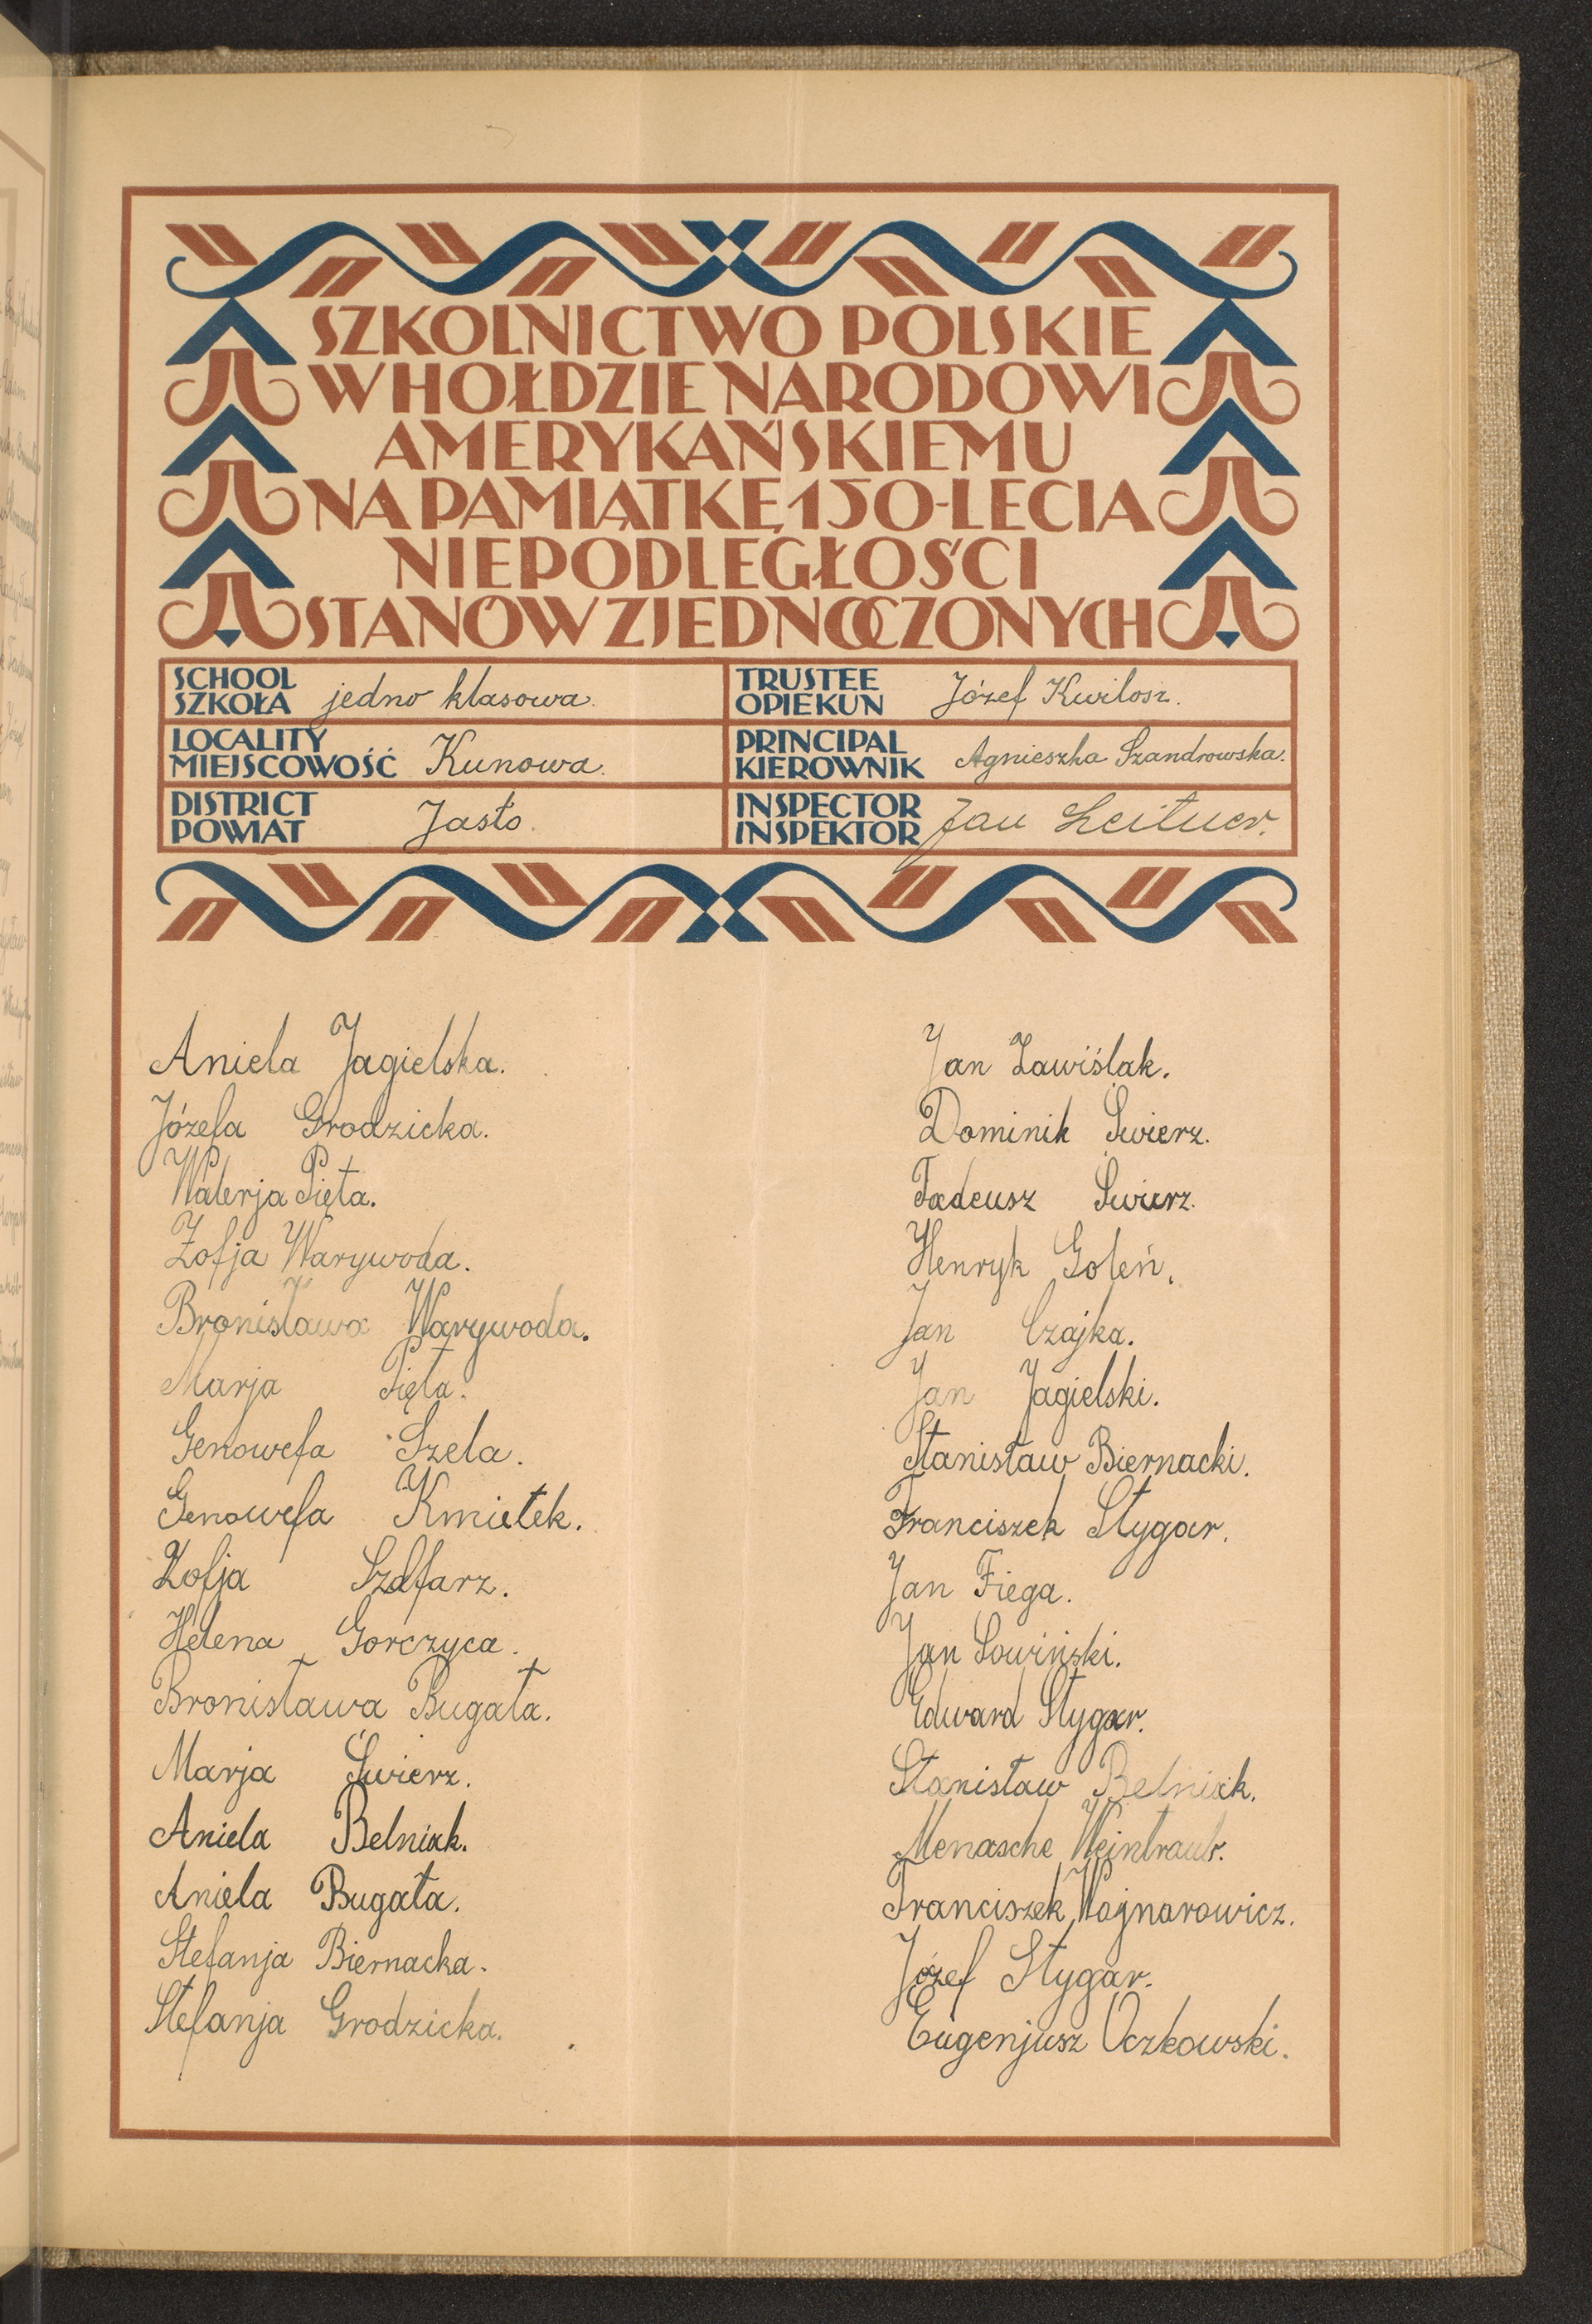 SZKOLNICTWO POLSKIE
W HOŁDZIE NARODOWI
AMERYKAŃSKIEMU
NA PAMIĄTKĘ 150-LECIA
NIEPODLEGŁOŚCI
STANÓW ZJEDNOCZONYCH
SCHOOL
SZKOŁA jedno klasowa.
TRUSTEE
OPIEKUN Józef Kwilosz.
LOCALITY
MIEJSCOWOŚĆ Kunowa.
PRINCIPAL
KIEROWNIK Agnieszka Szandrowska.
DISTRICT
POWIAT Jasło.
INSPECTOR
INSPEKTOR Jan Leitner.
Aniela Jagielska.
Józefa Grodzicka.
Walerja Pięta.
Zofja Warywoda.
Bronisława Warywoda.
Marja Pięta.
Genowefa Szela.
Genowefa Kmietek.
Zofja Szafarz.
Helena Gorczyca.
Bronisława Bugata.
Marja Świerz.
Aniela Belniak.
Aniela Bugata.
Stefanja Biernacka.
Stefanja Grodzicka.
Jan Zawiślak.
Dominik Świerz.
Tadeusz Świerz.
Henryk Goleń.
Jan Czajka.
Jan Jagielski.
Stanisław Biernacki.
Franciszek Stygar.
Jan Fiega.
Jan Sowiński.
Edward Stygar.
Stanisław Belniak.
Menasche Weintraub.
Franciszek Wojnarowicz.
Józef Stygar.
Eugenjusz Oczkowski.